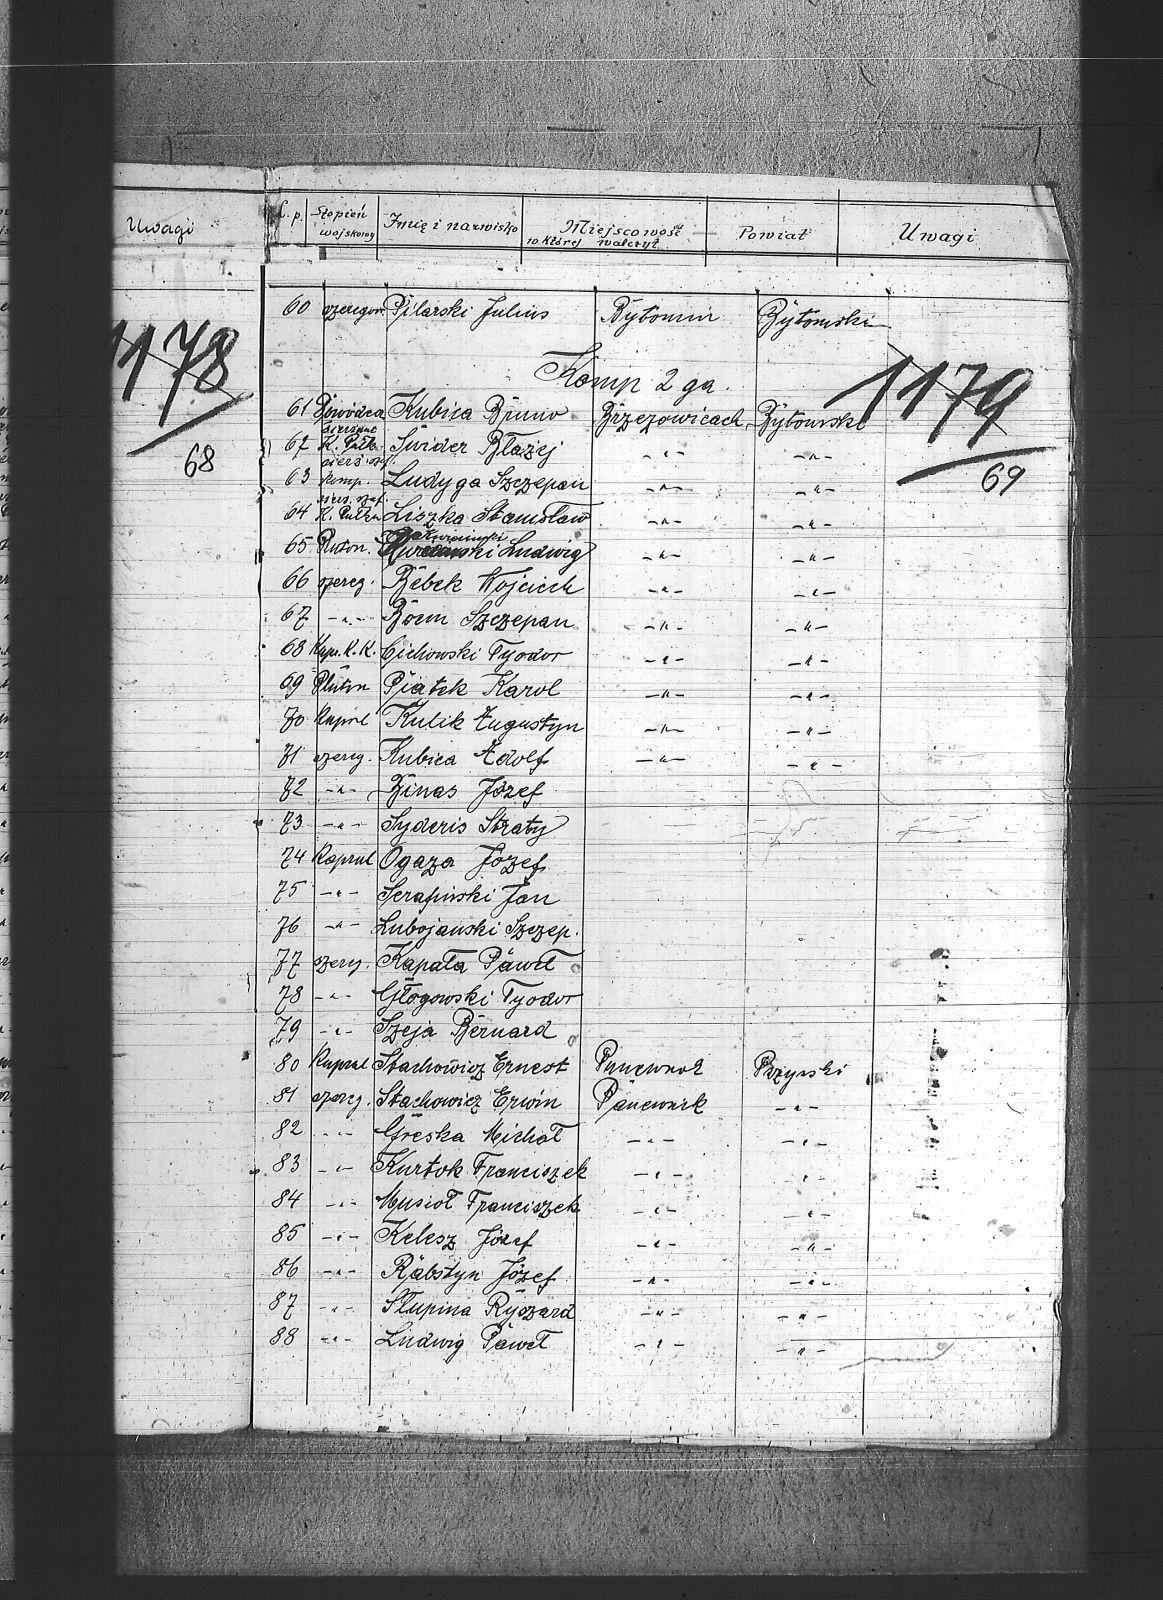 Uwagi
1178
68
L.p. Stopień wojskowy Imię i nazwisko Miejscowość w której walczył Powiat Uwagi
60 szeregow. Pilarski Julius Bytomiu Bytomski
1179
69
Komp 2 ga.
61 Dowódca Kubica Bruno Brzezowicach Bytomski
62 sierżant K. Pułk Świder Błażej -"- -"-
63 sierż. szef komp. Ludyga Szczepan -"- -"-
64 sierż. szef. K. Pułku Liszka Stanisław -"- -"-
65 Pluton. Ludwig -"- -"-
66 szereg. Bębek Wojciech -"- -"-
67 -"- Böem Szczepan -"- -"-
68 Kapr. K.K. Cichowski Tyodor -"- -"-
69 Pluton Piątek Karol -"- -"-
70 Kapral Kulik Augustyn -"- -"-
71 szereg. Kubica Adolf -"- -"-
72 -"- Binas Józef
73 -"- Syderis Straty
74 Kapral Ogaza Józef
75 -"- Serafiński Jan
76 -"- Lubojański Szczep.
77 szereg. Kapała Paweł
78 -"- Głogowski Tyodor
79 -"- Szeja Bernard
80 Kapral Stachowicz Ernest Panewnik Pszyński
81 szereg. Stachowicz Erwin Panewnik -"-
82 -"- Greska Michał -"- -"-
83 -"- Kurtok Franciszek -"- -"-
84 -"- Musioł Franciszek -"- -"-
85 -"- Kelesz Józef -"- -"-
86 -"- Rabstyn Józef -"- -"-
87 -"- Słupina Ryszard -"- -"-
88 -"- Ludwig Paweł -"- -"-